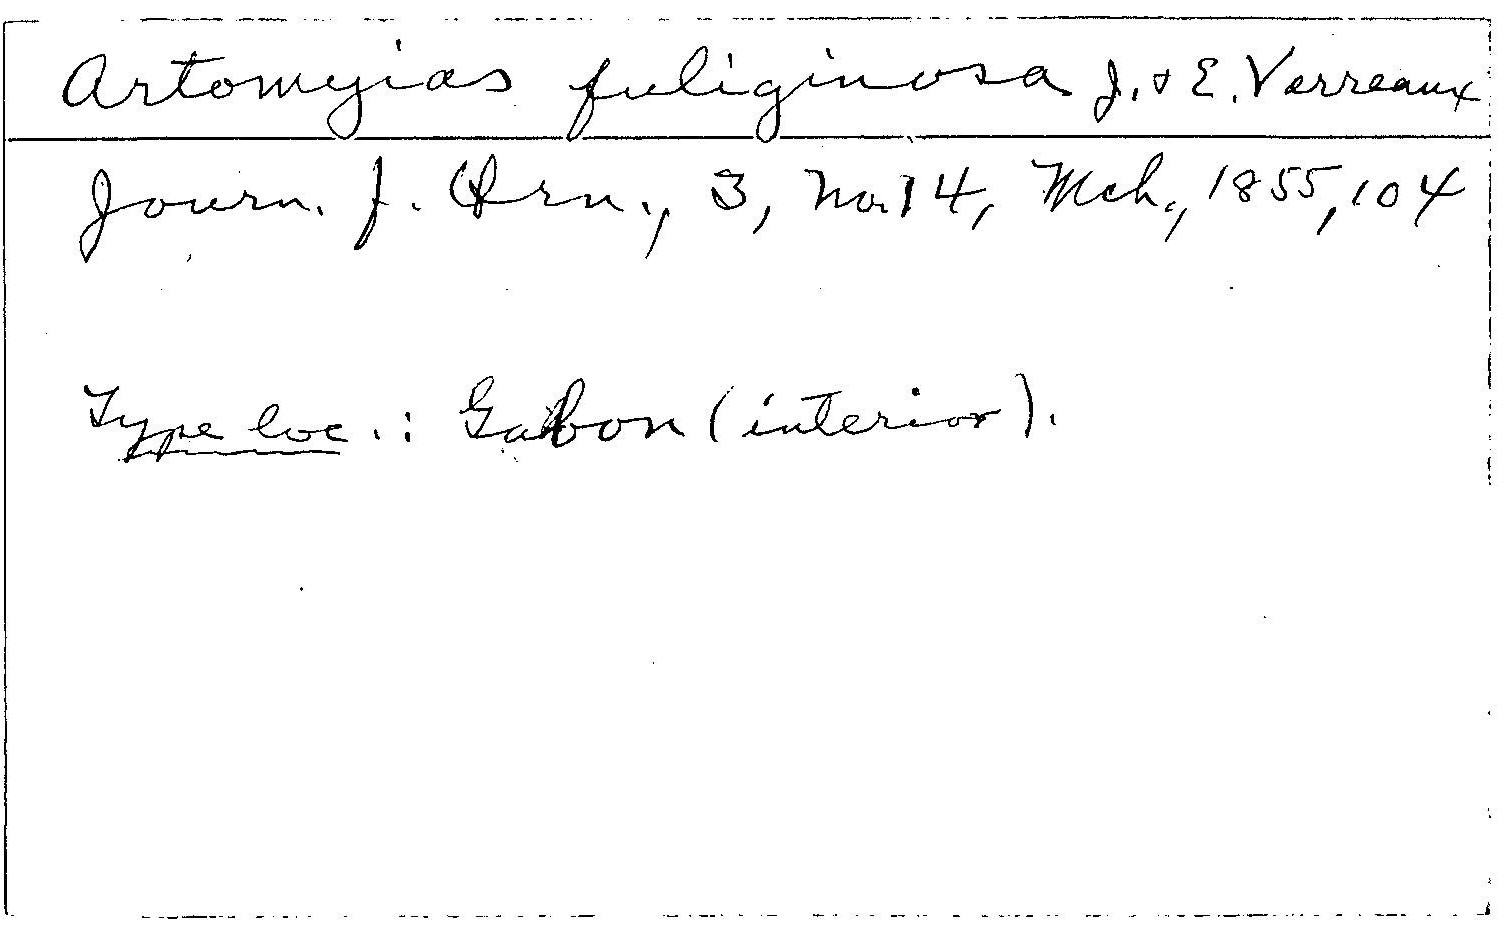 Artomyias fuliginosa J. & E. Verreaux
Journ. f. Orn., 3, No. 14, Mch., 1855, 104
Type loc.: Gabon (interior).